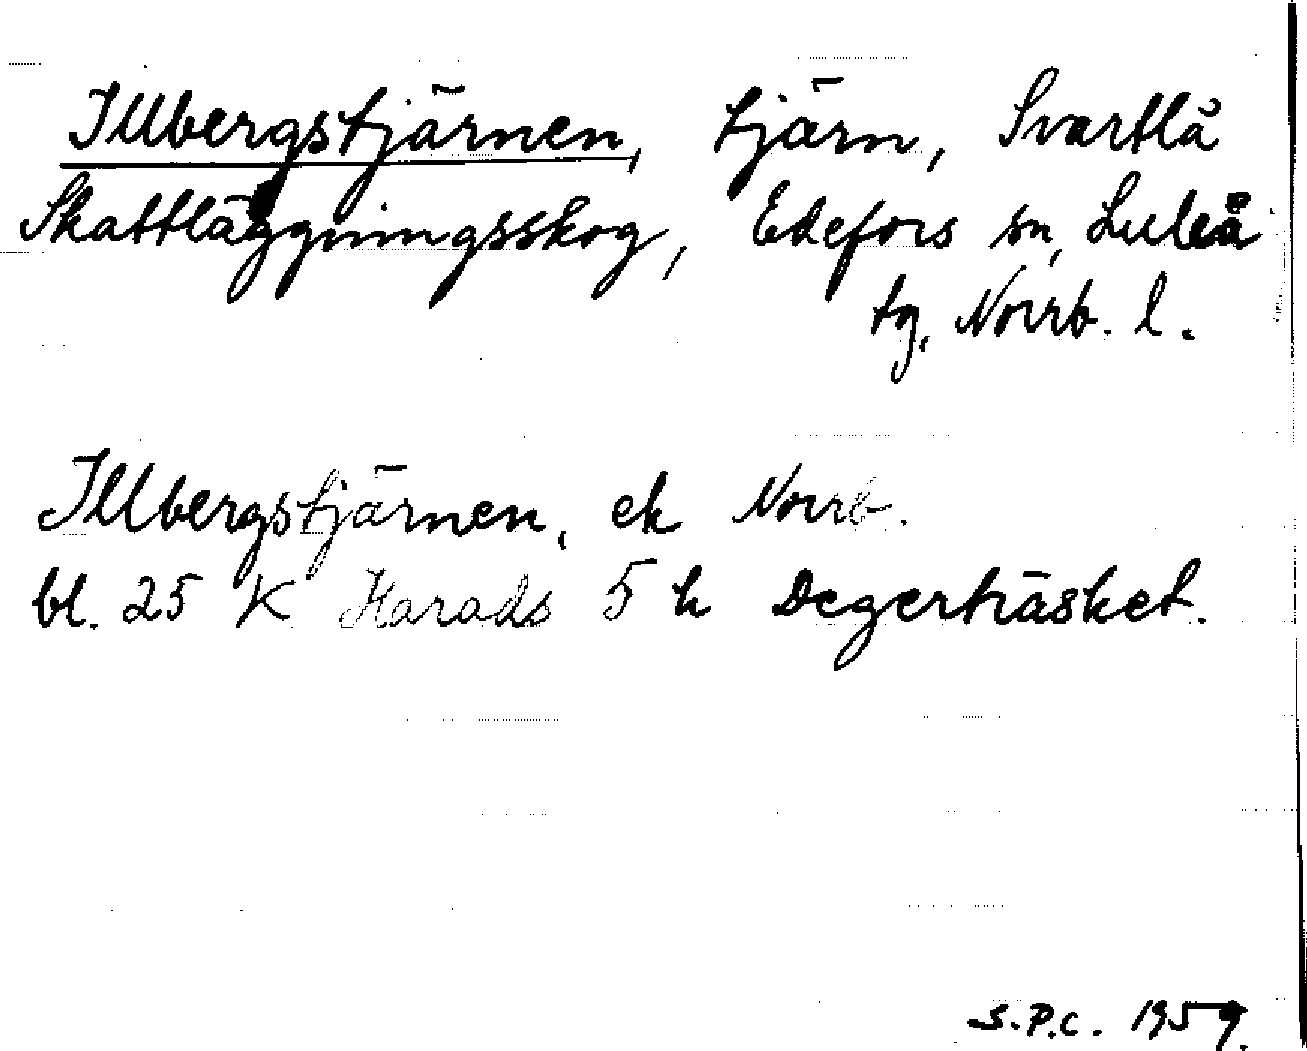 Illbergstjärnen, tjärn, Svartlå
Skattläggningsskog, Edefors sn, Luleå
tg, Norrb. l.
Illbergstjärnen, ek Norrb.
bl. 25 K Harads 5 h Degerträsket.
S.P.C. 1959.